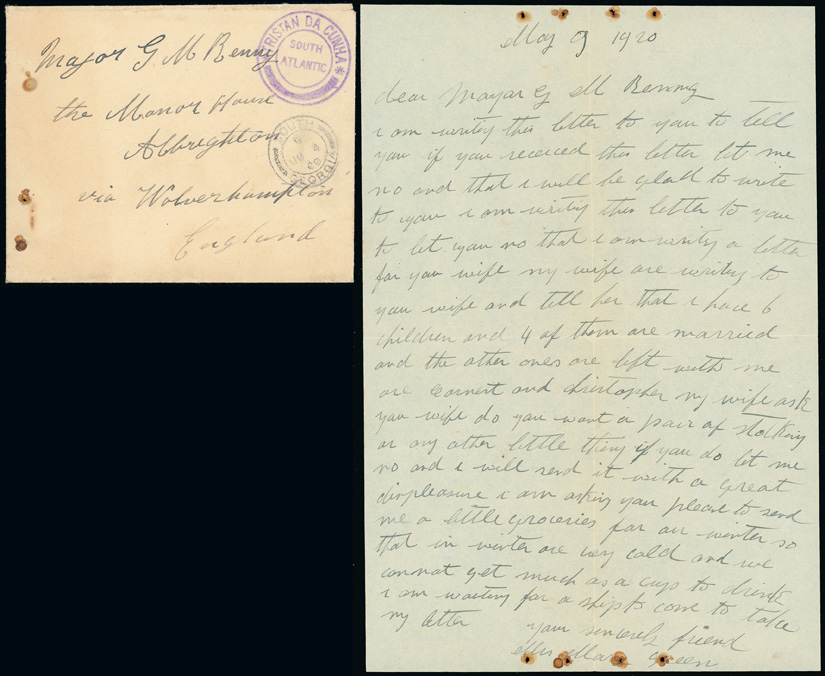 Major G M Benny
the Manor House
Albrighton
via Wolverhampton
England
TRISTAN DA CUNHA
SOUTH
ATLANTIC
SOUTH
GEORGIA
May 9 1920
dear Mayar G M Benny
i am writy this letter to you to tell
you if you receced this letter let me
no and that i will be glad to write
to you i am writy this letter to you
to let you no that i am writy a letter
for you wife my wife are writy to
you wife and tell her that i have 6
children and 4 of them are married
and the other ones are left with me
are Earnert and Christopher my wife ask
you wife do you want a pair of stocking
or any other little thing if you do let me
no and i will send it with a great
displeasure i am asking you please to send
me a little groceries for our winter so
that in winter are very cold and we
cannot get much as a cup to drink
i am waiting for a ship to come to take
my letter
your sincerely friend
Green